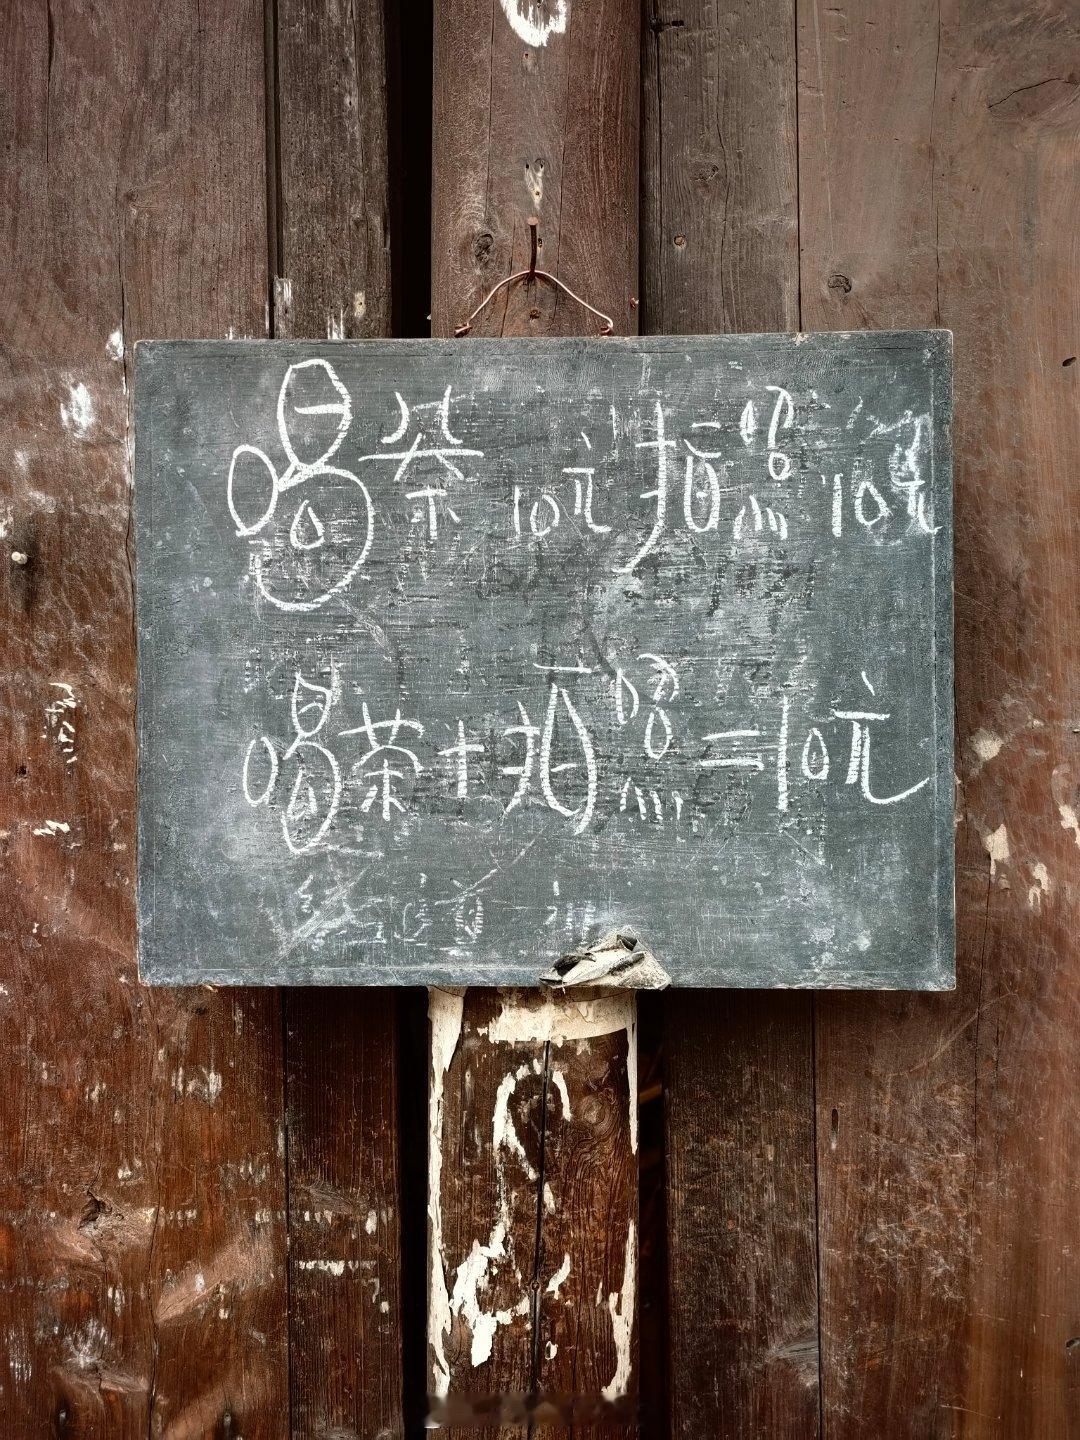 喝茶10元拍照10元
喝茶+拍照=10元